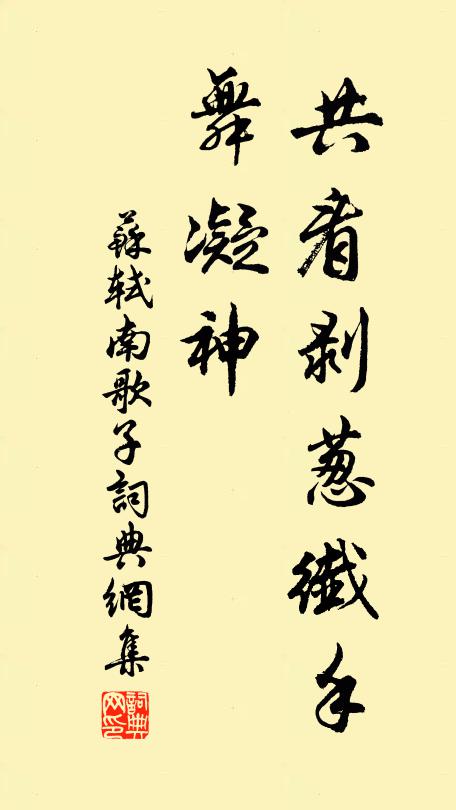 共看剥葱纖手
舞凝神
蘇軾南歌子詞典網集
詞典网印